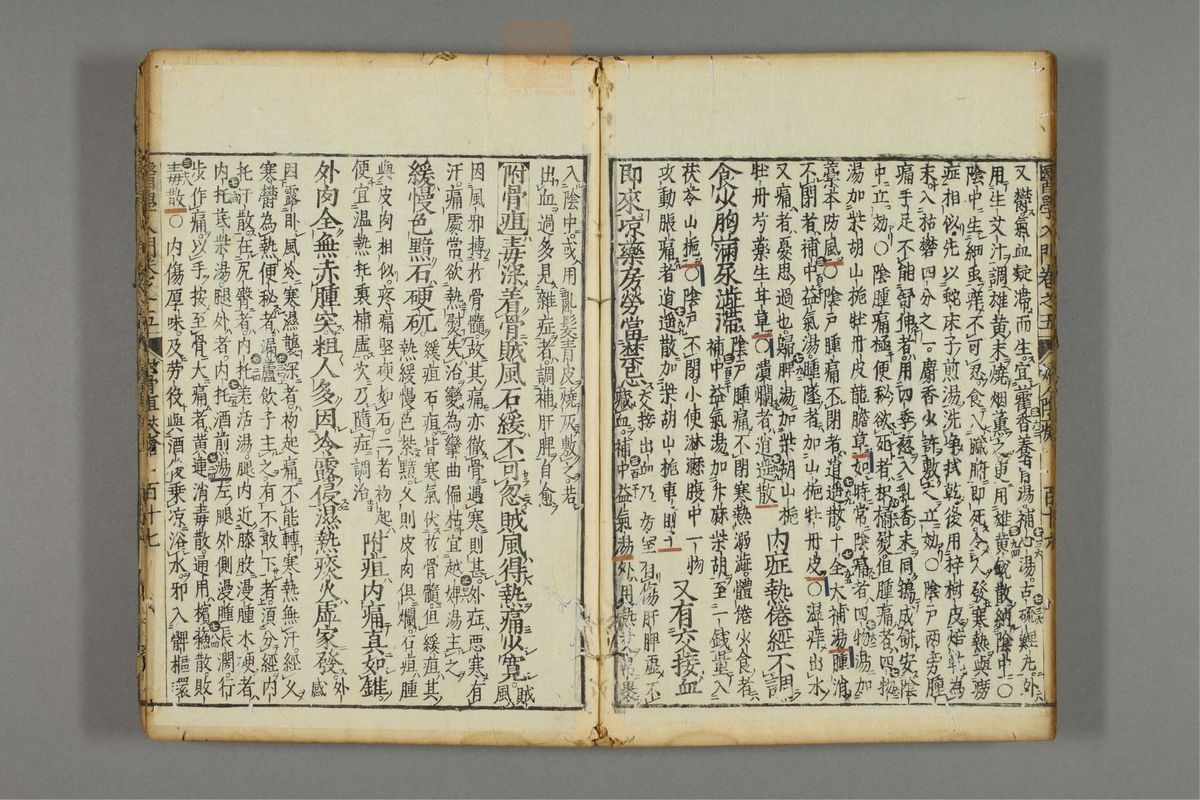 又鬱氣血凝滯而生宜藿香養胃湯補心湯古硫鯉丸外
用生艾汁調雄黃末燒烟薰之更用雄黃銳散納陰中○
陰中生細虫痒不可忍食入臟腑即死令人發寒熱與勞
症相似先以蛇床子煎湯洗淨拭乾後用梓樹皮焙乾為
末入枯礬四分之一麝香少許敷之立効○陰戶兩旁腫
痛手足不能舒伸者用四季葱入乳香末同搗成餅安陰
中立効○陰腫痛極便秘欲死者枳橘熨但腫痛者四物
湯加柴胡山梔牡丹皮龍膽草如時常陰痛者四物湯加
藁本防風○陰戶腫痛不閉者逍遙散十全大補湯腫消
不閉者補中益氣湯腫墜者加山梔牡丹皮○濕痒出水
又痛者憂思過也歸脾湯加柴胡山梔
牡丹芍藥生甘草○潰爛者逍遙散 內症熱倦經不調
食少胸滿尿澁滯 陰戶腫痛不閉寒熱溺澁體倦少食者
補中益氣湯加升麻柴胡至一錢量入
茯苓山梔○陰戶不閉小便淋瀝腹中一物
攻動脹痛者逍遙散加柴胡山梔車前子 又有交接血
即來凉藥房勞當禁忌 交接出血乃房室有傷肝脾虛不
藏血補中益氣湯外用熱艾帛裹
入陰中或用亂髮青皮燒灰敷之若
出血過多見雜症者調補肝脾自愈
附骨疽毒深着骨賊風石緩不可忽賊風得熱痛少寬 賊風
因風邪搏於骨髓故其痛亦徹骨遇寒則甚外症惡寒有
汗痛處常欲熱熨失治變為攣曲偏枯宜越婢湯主之
緩慢色黯石硬矹 緩疽石疽皆寒氣伏於骨髓但緩疽其
熱緩慢色紫黯久則皮肉俱爛石疽腫
與皮肉相似疼痛堅硬如石二者初起
便宜溫熱托裏補虛次乃隨症調治 附疽內痛真如錐
外肉全無赤腫突粗人多因冷露侵濕熱痰火虛家發 外感
因露卧風冷寒濕襲深者初起痛不能轉寒熱無汗經久
寒鬱為熱便秘者漏蘆飲子主之有不敢下者須分經內
托汗散在尻臀者內托羌活湯腿內近膝股漫腫木硬者
內托芪柴湯腿外者內托酒煎湯左腿外側漫腫長濶行
步作痛以手按至骨大痛者黃連消毒散通用檳蘇散敗
毒散○內傷厚味及勞役與酒後乘凉浴水邪入髀樞環